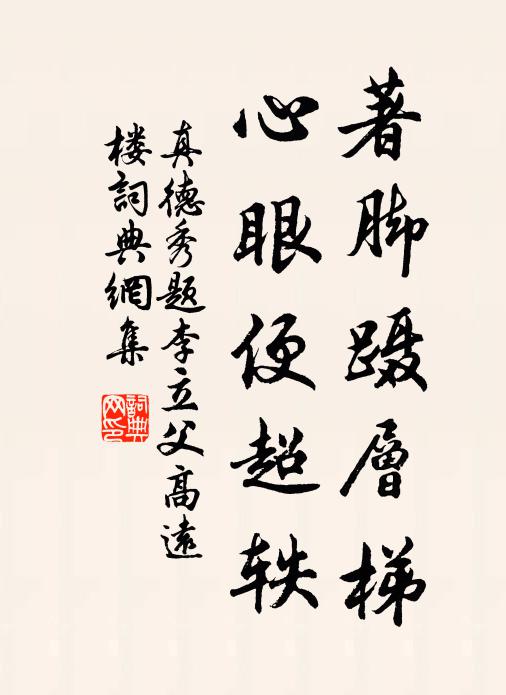 著脚蹑層梯
心眼便超轶
真德秀题李立父高遠
楼詞典網集
詞典网印